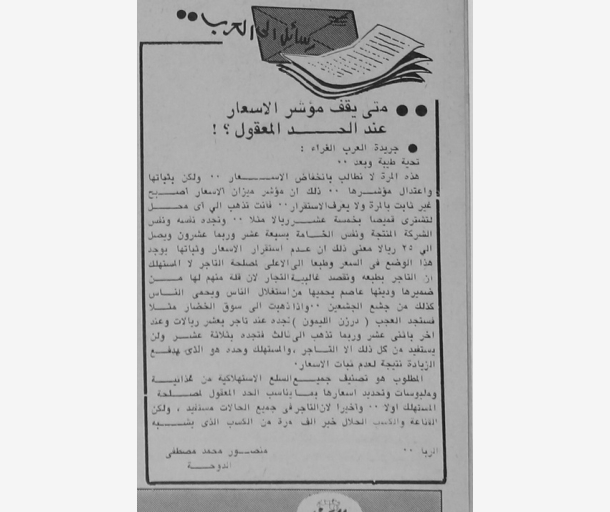 رسائل الى العرب ●●
●● متى يقف مؤشر الاسعار
عند الحـــد المعقول ؟ !
● جريدة العرب الغراء :
تحية طيبة وبعد ٠٠
هذه المرة لا نطالب بانخفاض الاســعار ٠٠ ولكن بثباتها
واعتدال مؤشــرها ٠٠ ذلك ان مؤشر ميزان الاسعار اصــبح
غير ثابت بالمرة ولا يعرف الاستقرار ٠٠ فانت تذهب الى اى محــل
لتشترى قميصا بخمسة عشــر ريالا مثلا ٠٠ وتجده نفسه ونفس
الشركة المنتجة ونفس الخــامة بسبعة عشر وربما عشرون ويصل
الى ٢٥ ريالا معنى ذلك ان عــدم استقرار الاسعار وثباتها يوجد
هذا الوضع فى السعر وطبعا الى الاعلى لمصلحة التاجر لا المستهلك
ان التاجر بطبعه ونقصد غالبيــة التجار لان قلة منهم لها مــن
ضميرها ودينها عاصم يحميها من استغلال الناس ويحمى النــاس
كذلك من جشع الجشعين ٠٠ واذا ذهبت الى سوق الخضار مثــلا
فستجد العجب ( درزن الليمون ) تجده عند تاجر بعشر ريالات وعند
اخر باثنى عشر وربما تذهب الى ثالث فتجده بثلاثة عشــر ولن
يستفيد من كل ذلك الا التــاجر ، والمستهلك وحده هو الذى يدفــع
الزيادة نتيجة لعدم ثبات الاسعار ٠
المطلوب هو تصنيف جميــع السلع الاستهلاكية من غذائيــة
وملبوسات وتحديد اسعارها بمــا يناسب الحد المعقول لمصــلحة
المستهلك اولا ٠٠ واخيرا لان التاجر فى جميع الحالات مستفيد ، ولكن
القناعة والكسب الحلال خير الف مرة من الكسب الذى يشــبه
الربا ٠٠
منصــور محمد مصطفى
الدوحــة